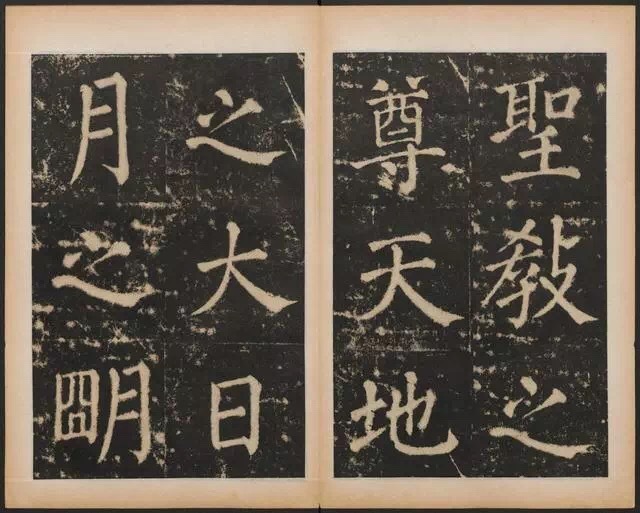 聖教之
尊天地
之大日
月之朙